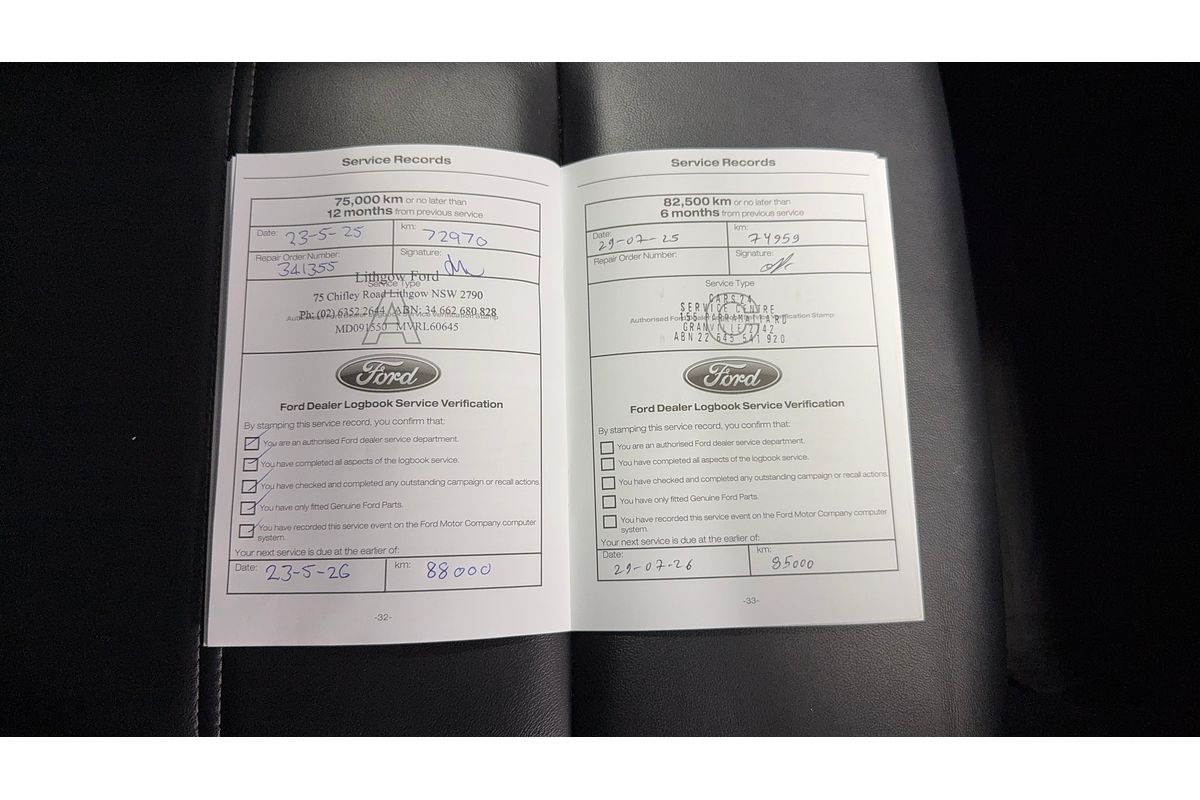 Service Records
75,000 km or no later than
12 months from previous service
Date: 23-5-25 km: 72970
Repair Order Number: 341355 Signature:
Lithgow Ford
Service Type
75 Chifley Road Lithgow NSW 2790
Ph: (02) 6352 2644 ABN: 34 662 680 828
MD091550 MVRL60645
A
Ford
Ford Dealer Logbook Service Verification
By stamping this service record, you confirm that:
You are an authorised Ford dealer service department.
You have completed all aspects of the logbook service.
You have checked and completed any outstanding campaign or recall actions.
You have only fitted Genuine Ford Parts.
You have recorded this service event on the Ford Motor Company computer
system.
Your next service is due at the earlier of:
Date: 23-5-26 km: 88000
-32-
Service Records
82,500 km or no later than
6 months from previous service
Date: 29-07-25 km: 74959
Repair Order Number: Signature:
Service Type
CARS24
SERVICE CENTRE
Authorised Ford Verification Stamp
GRANVILLE 2142
ABN 22 645 541 920
Ford
Ford Dealer Logbook Service Verification
By stamping this service record, you confirm that:
You are an authorised Ford dealer service department.
You have completed all aspects of the logbook service.
You have checked and completed any outstanding campaign or recall actions.
You have only fitted Genuine Ford Parts.
You have recorded this service event on the Ford Motor Company computer
system.
Your next service is due at the earlier of:
Date: 29-07-26 km: 85000
-33-